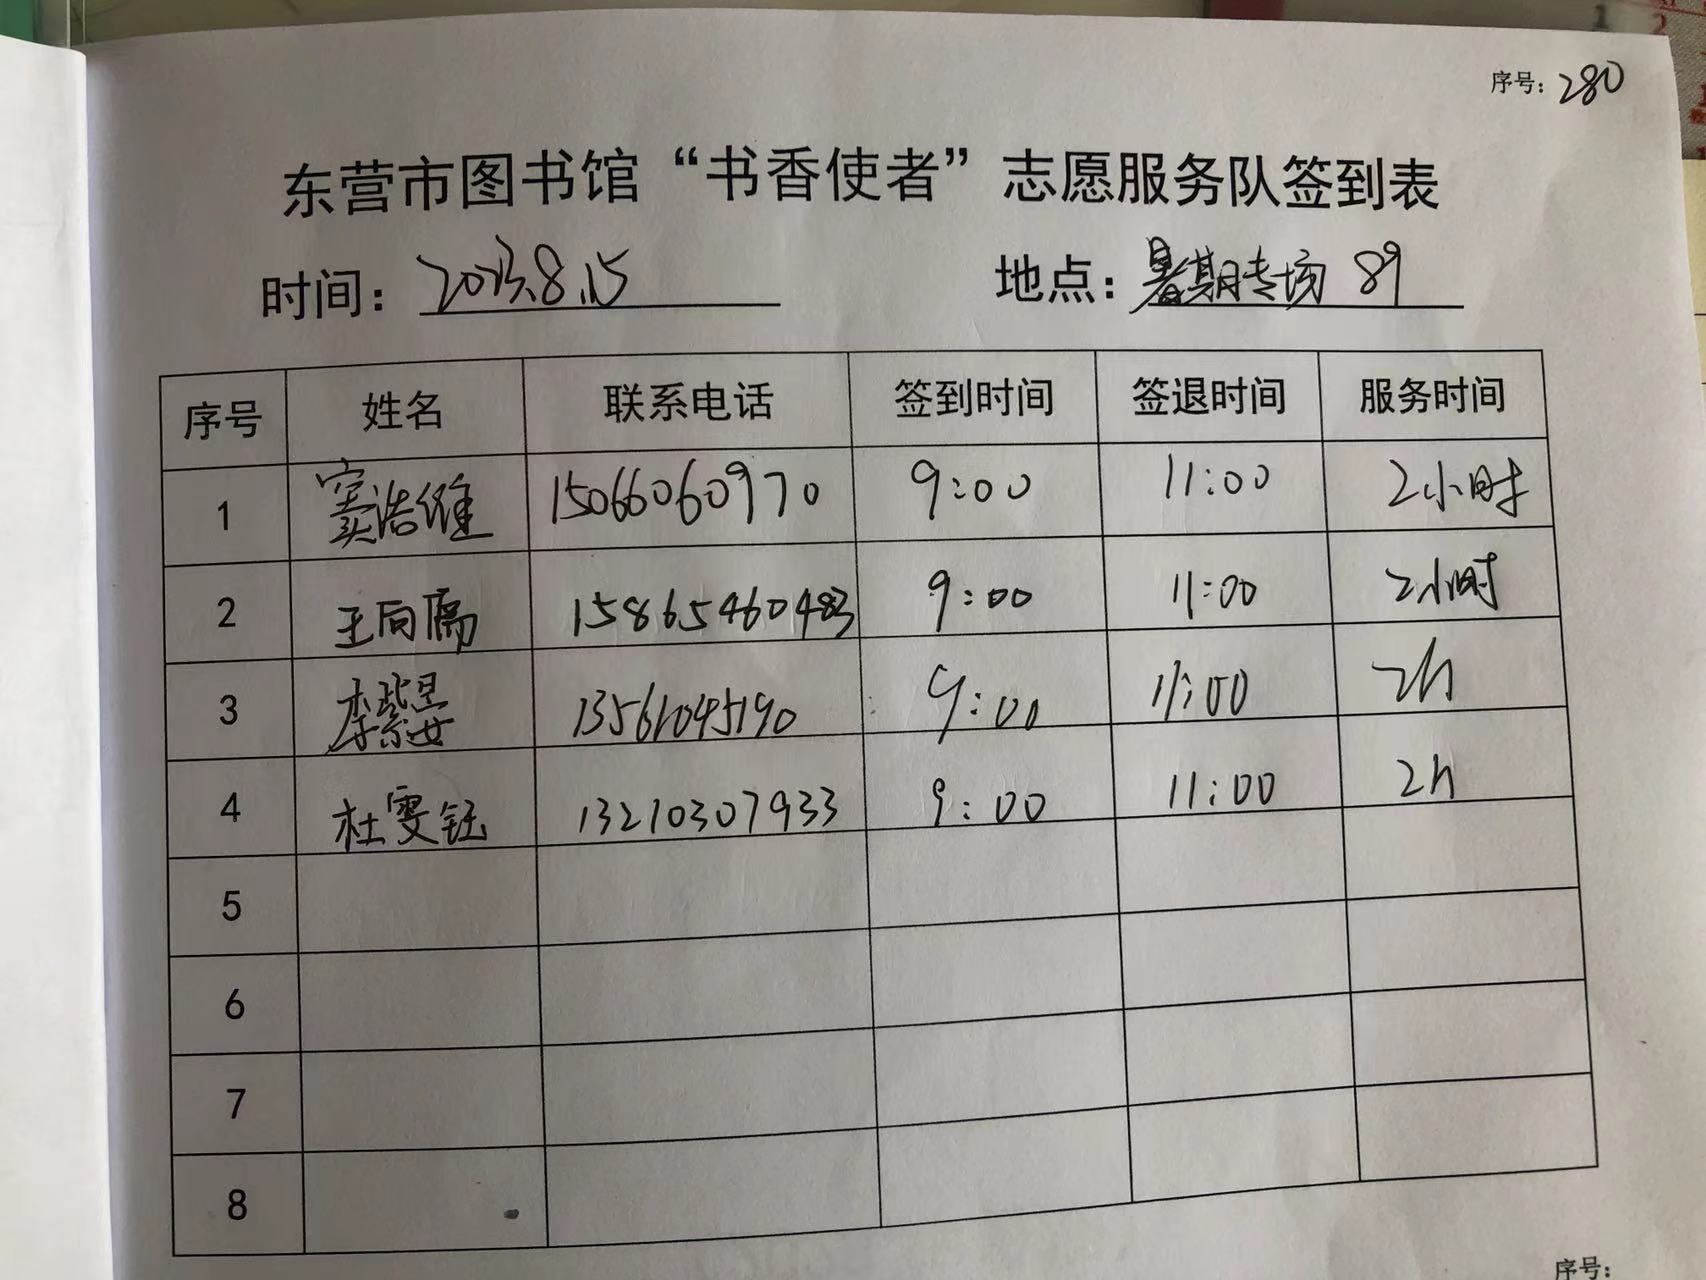 序号：280
东营市图书馆“书香使者”志愿服务队签到表
时间：2023.8.15 地点：暑期专场 89
序号 姓名 联系电话 签到时间 签退时间 服务时间
1 窦浩维 15066060970 9:00 11:00 2小时
2 王向 15865460483 9:00 11:00 2小时
3 李紫 13561045190 9:00 11:00 2h
4 杜雯钰 13210307933 9:00 11:00 2h
5
6
7
8
序号：